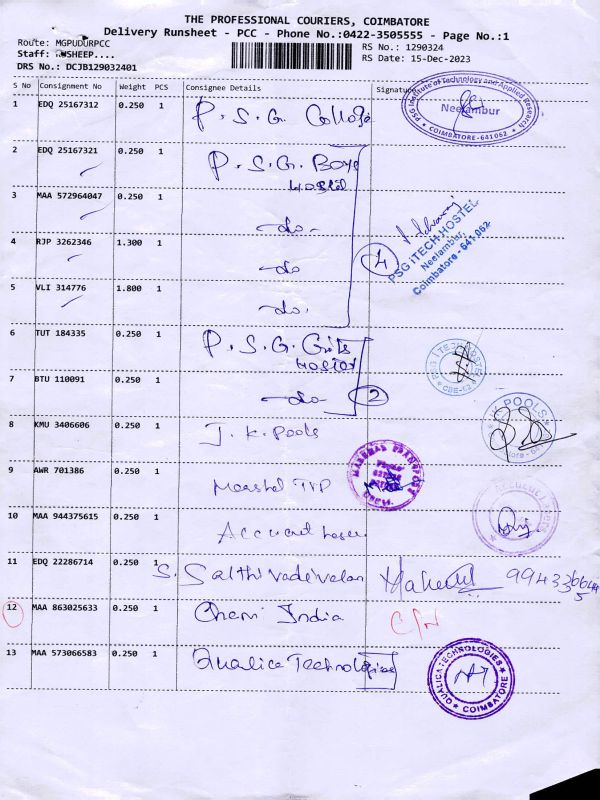 THE PROFESSIONAL COURIERS, COIMBATORE
Delivery Runsheet - PCC - Phone No.:0422-3505555 - Page No.:1
Route: MGPUDURPCC
RS No.: 1290324
Staff:
RS Date: 15-Dec-2023
DRS No.: DCJB129032401
S No Consignment No Weight PCS Consignee Details Signature
1 EDQ 25167312 0.250 1 P.S.G. College
PSG Institute of Technology and Applied Research
Neelambur
* COIMBATORE-641 062 *
2 EDQ 25167321 0.250 1 P.S.G. Boys
Hostel
3 MAA 572964047 0.250 1 -do-
PSG iTECH HOSTEL
Neelambur,
Coimbatore - 641 062
4 RJP 3262346 1.300 1 -do
4
5 VLI 314776 1.800 1 -do.
6 TUT 184335 0.250 1 P.S.G. Girls
Hostel
7 BTU 110091 0.250 1 -do-
2
CBE-62
8 KMU 3406606 0.250 1 J.K. Pools
POOLS
9 AWR 701386 0.250 1
10 MAA 944375615 0.250 1
11 EDQ 22286714 0.250 1 S. Sakthivadivelan
12 MAA 863025633 0.250 1 Chem India
13 MAA 573066583 0.250 1 Qualica Technologies
QUALICA TECHNOLOGIES
* COIMBATORE *